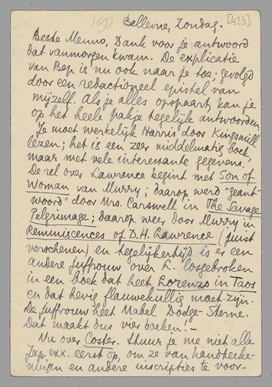 Bellevue, Zondag. [423]
Beste Menno, Dank voor je antwoord
dat vanmorgen kwam. De explicatie
van Bep is nu ook naar je toe; gevolgd
door een redactioneel epistel van
mijzelf. Als je alles opspaart, kan je
op het heele pakje tegelijk antwoorden.
Je moet werkelijk Harris door Kingsmill
lezen; het is een zeer middelmatig boek
maar met vele interessante gegevens.
De rel over Lawrence begint met Son of
Woman van Murry; daarop werd "geant-
woord" door Mrs. Carswell in The Savage
Pelgrimage; daarop weer door Murry in
Reminiscences of D.H. Lawrence (juist
verschenen) en tegelijkertijd is er een
andere juffrouw over L. losgebroken
in een boek dat heet Lorenzo in Taos
en dat hevig flauwekullig moet zijn.
De juffrouw heet Mabel Dodge-Sterne.
Dat maakt dus vier boeken! –
Nu over Coster. Stuur je me niet alle
Jap. exx. eerst op, om ze van handteeke-
ningen en andere inscripties te voor-